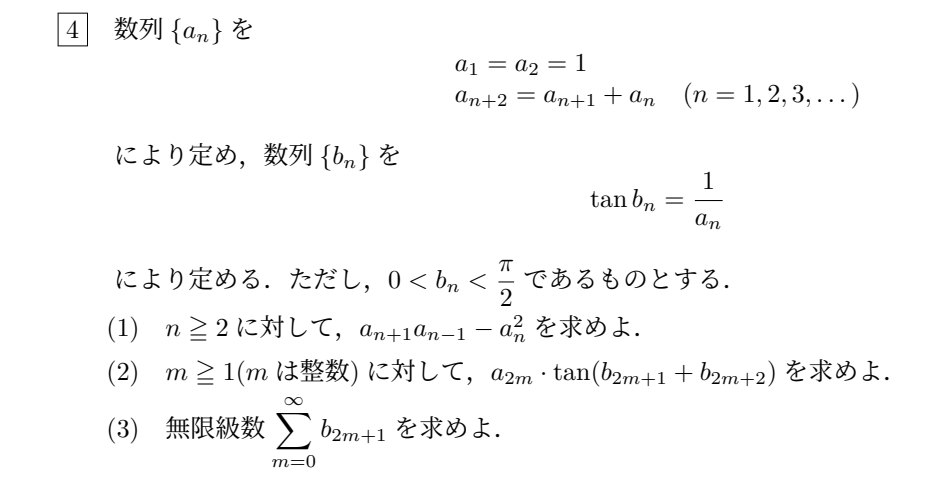 4 数列 {aₙ} を
a₁ = a₂ = 1
aₙ₊₂ = aₙ₊₁ + aₙ (n = 1, 2, 3, . . . )
により定め，数列 {bₙ} を
tan bₙ = 1/aₙ
により定める．ただし，0 < bₙ < π/2 であるものとする．
(1) n ≧ 2 に対して，aₙ₊₁aₙ₋₁ − aₙ² を求めよ．
(2) m ≧ 1(m は整数) に対して，a₂ₘ · tan(b₂ₘ₊₁ + b₂ₘ₊₂) を求めよ．
(3) 無限級数 ∑_{m=0}^{∞} b₂ₘ₊₁ を求めよ．